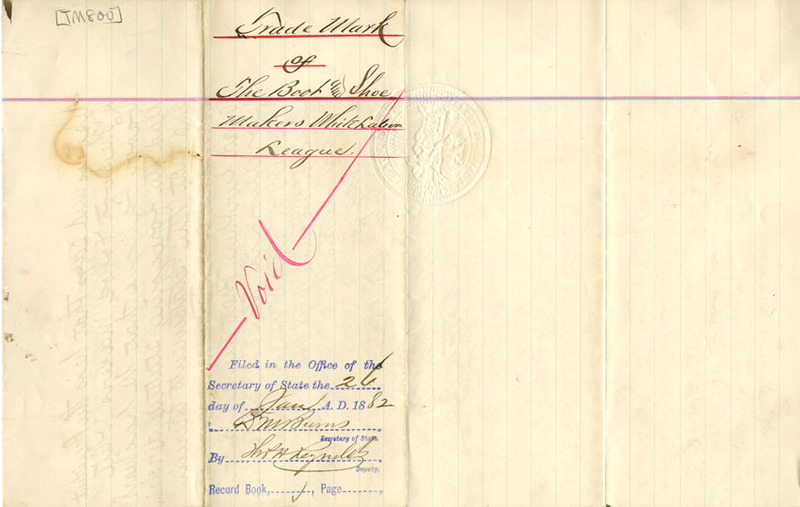 [TM800]
Trade Mark
of
The Boot & Shoe
Makers White Labor
League.
Void
Filed in the Office of the
Secretary of State the 26
day of Jany A. D. 1882
D M Burns
Secretary of State.
By Reynolds
Deputy.
Record Book, 1, Page